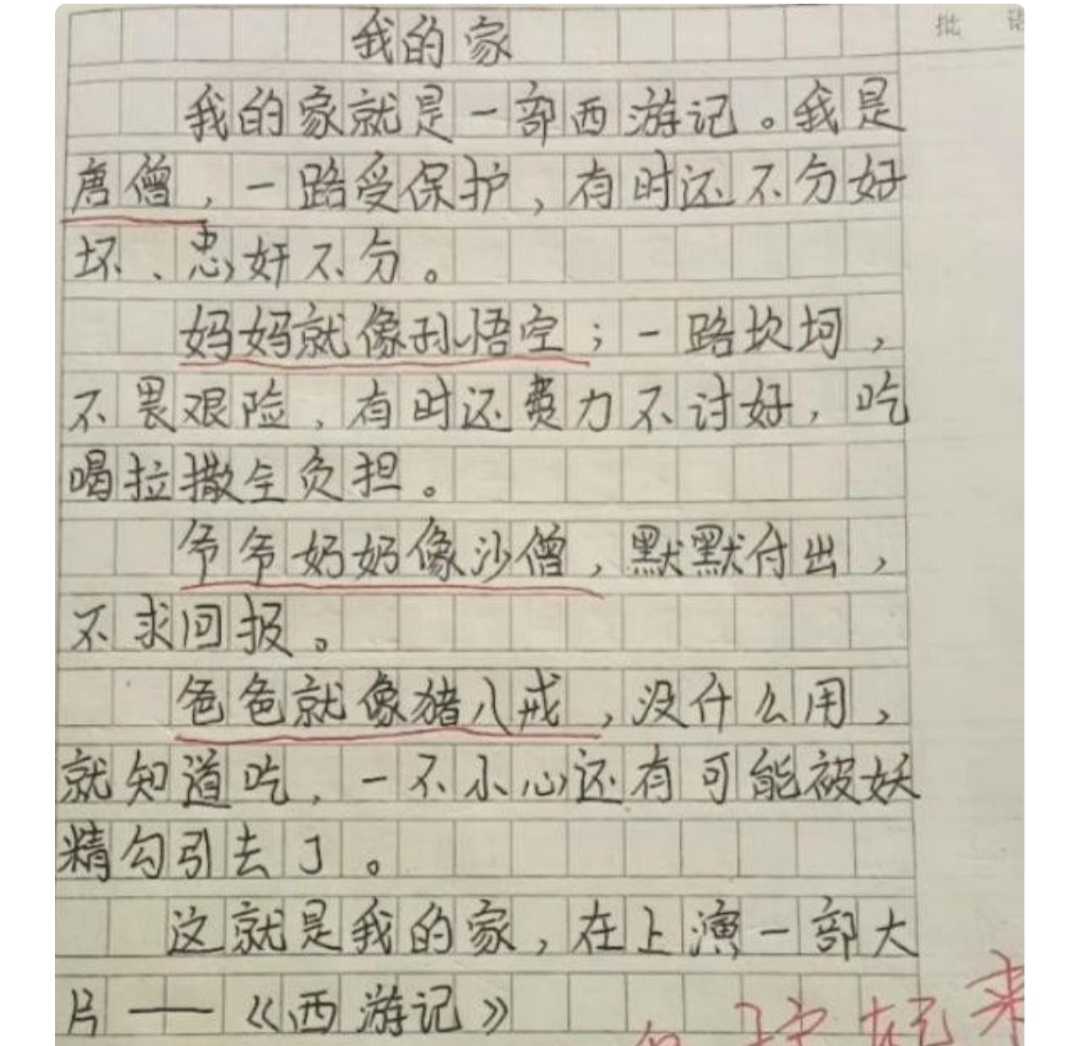 批 语
我的家
我的家就是一部西游记。我是
唐僧，一路受保护，有时还不分好
坏、忠奸不分。
妈妈就像孙悟空；一路坎坷，
不畏艰险，有时还费力不讨好，吃
喝拉撒全负担。
爷爷奶奶像沙僧，默默付出，
不求回报。
爸爸就像猪八戒，没什么用，
就知道吃，一不小心还有可能被妖
精勾引去了。
这就是我的家，在上演一部大
片——《西游记》
来